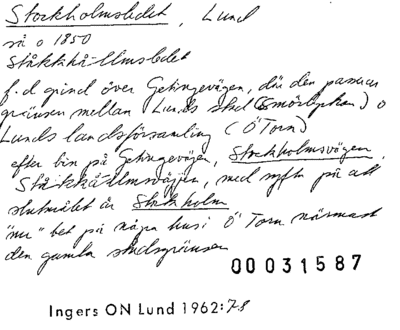 Stockholmsledet, Lund
så o 1850
ståkkhå-llmsledet
f.d. grind över Getingevägen, där den passerar
gränsen mellan Lunds stad (Smörlyckan) o
Lunds landsförsamling (Ö Torn)
efter bin på Getingevägen, Stockholmsvägen
Ståkkhå-llmsvägen, med syfte på att
slutmålet är Stockholm
"nu" bet på några hus i Ö Torn närmast
den gamla stadsgränsen
00031587
Ingers ON Lund 1962:78